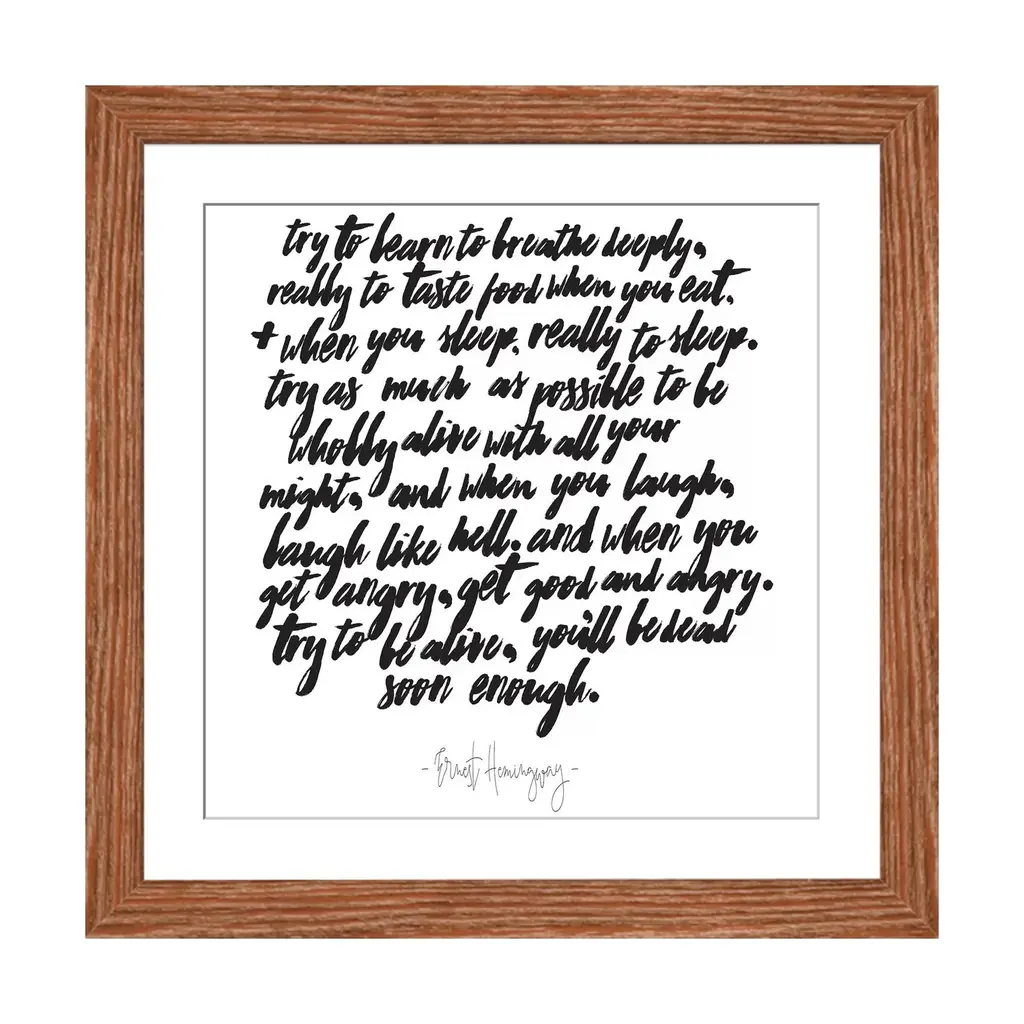 try to learn to breathe deeply,
really to taste food when you eat,
+ when you sleep, really to sleep.
try as much as possible to be
wholly alive with all your
might, and when you laugh,
laugh like hell. and when you
get angry, get good and angry.
try to be alive, you'll be dead
soon enough.
- Ernest Hemingway -